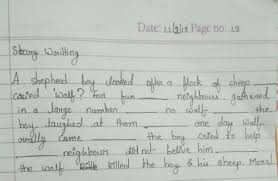 Date: 11/9/19 Page no: 19
Story Writting
A shepherd boy looked after a flock of sheep
cried 'Wolf'? For fun ___ neighbours gathered
in a large number ___ no wolf ___ the
boy laughed at them ___ one day wolf
really came ___ the boy cried to help
___ neighbours did not belive him
the wolf killed the boy & his sheep. Moral